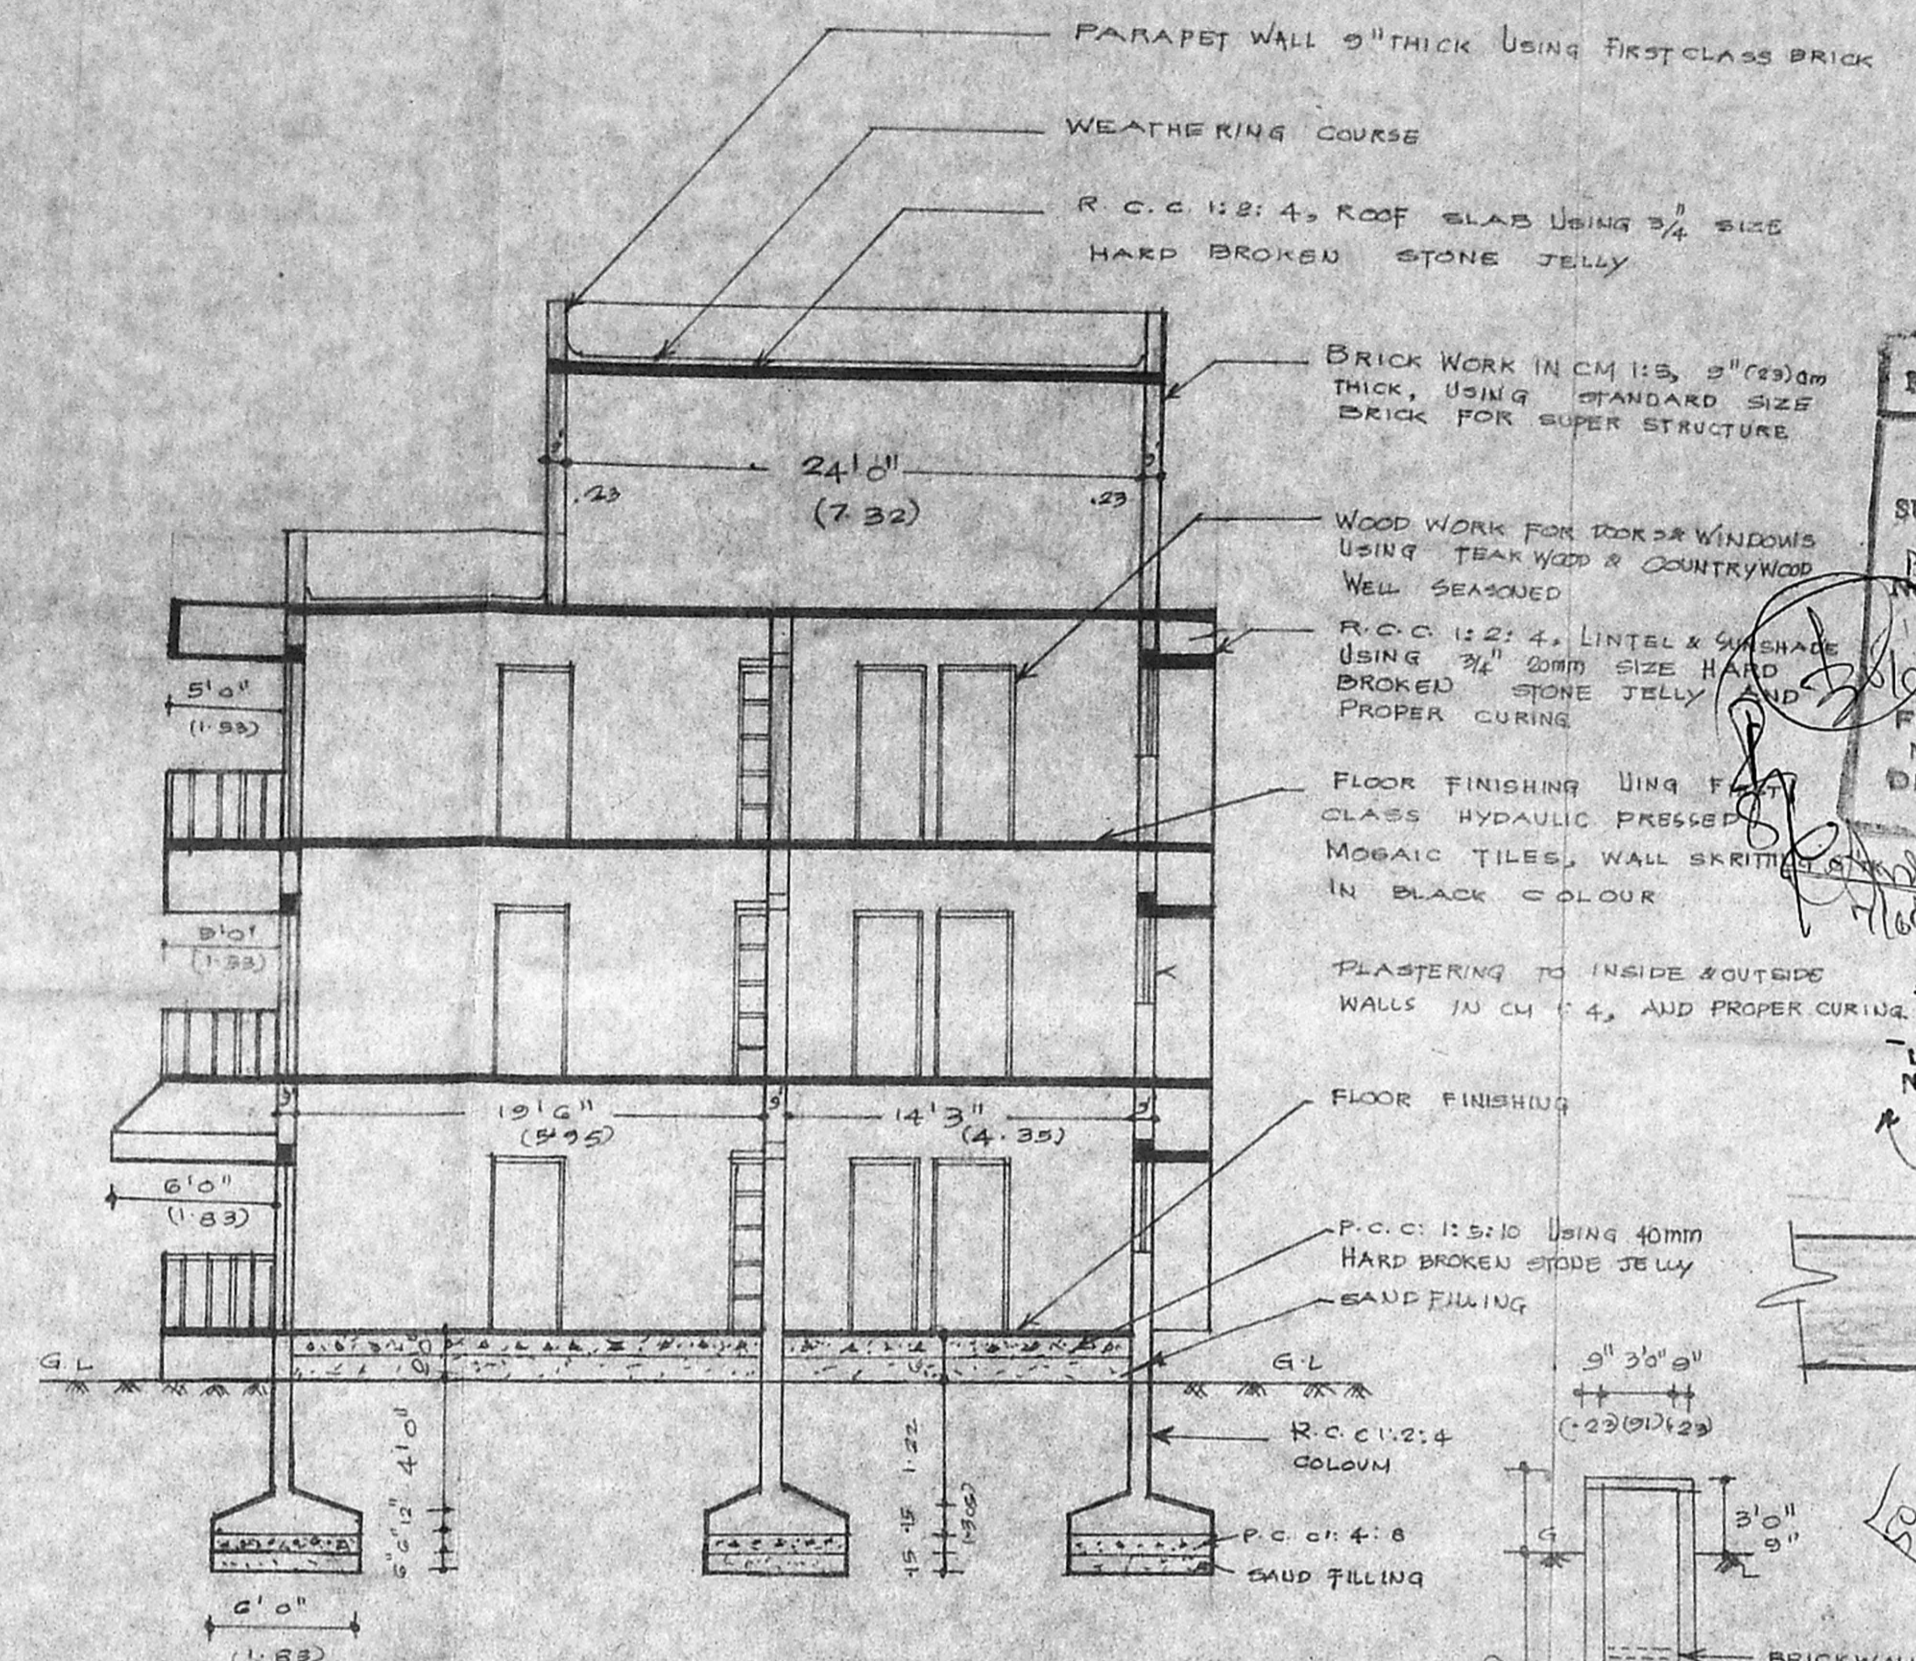 PARAPET WALL 9" THICK USING FIRST CLASS BRICK
WEATHERING COURSE
R.C.C. 1:2:4, ROOF SLAB USING 3/4" SIZE
HARD BROKEN STONE JELLY
BRICK WORK IN CM 1:5, 9"(23)cm
THICK, USING STANDARD SIZE
BRICK FOR SUPER STRUCTURE
24'0"
(7.32)
.23
.23
WOOD WORK FOR DOORS & WINDOWS
USING TEAK WOOD & COUNTRYWOOD
WELL SEASONED
R.C.C. 1:2:4, LINTEL & SUNSHADE
USING 3/4" 20mm SIZE HARD
BROKEN STONE JELLY AND
PROPER CURING
5'0"
(1.53)
FLOOR FINISHING UING FIRST
CLASS HYDAULIC PRESSED
MOSAIC TILES, WALL
IN BLACK COLOUR
PLASTERING TO INSIDE & OUTSIDE
WALLS IN CM 1:4, AND PROPER CURING.
9'
19'6"
(5.95)
9'
14'3"
(4.35)
9'
FLOOR FINISHING
6'0"
(1.83)
P.C.C. 1:5:10 USING 40mm
HARD BROKEN STONE JELLY
SAND FILLING
G.L
G.L
9" 3'0" 9"
(.23)(91)(.23)
R.C.C 1:2:4
COLOUM
4'0"
1.22
6" 6" 12"
.15 .15
(.305)
P.C.C 1:4:8
SAND FILLING
6'0"
(1.83)
G
3'0"
9"
BRICK WALL